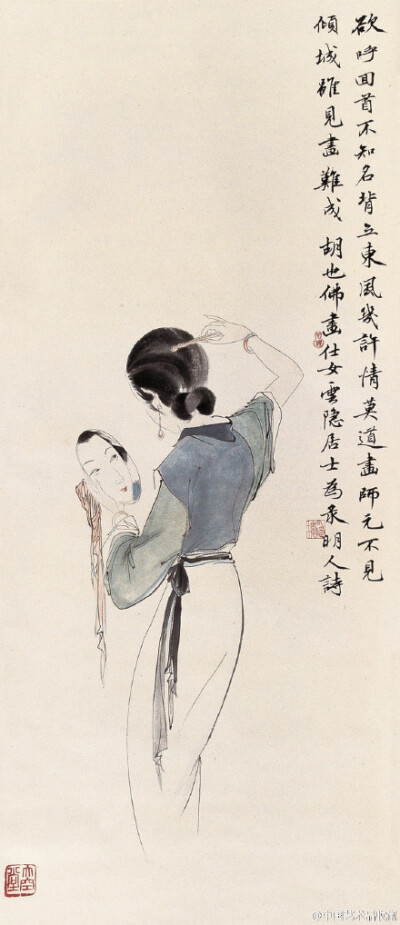 欲呼回首不知名背立東風幾許情莫道畫師元不見
傾城雖見畫難成 胡也佛畫仕女雲隱居士為录明人詩
大空堂